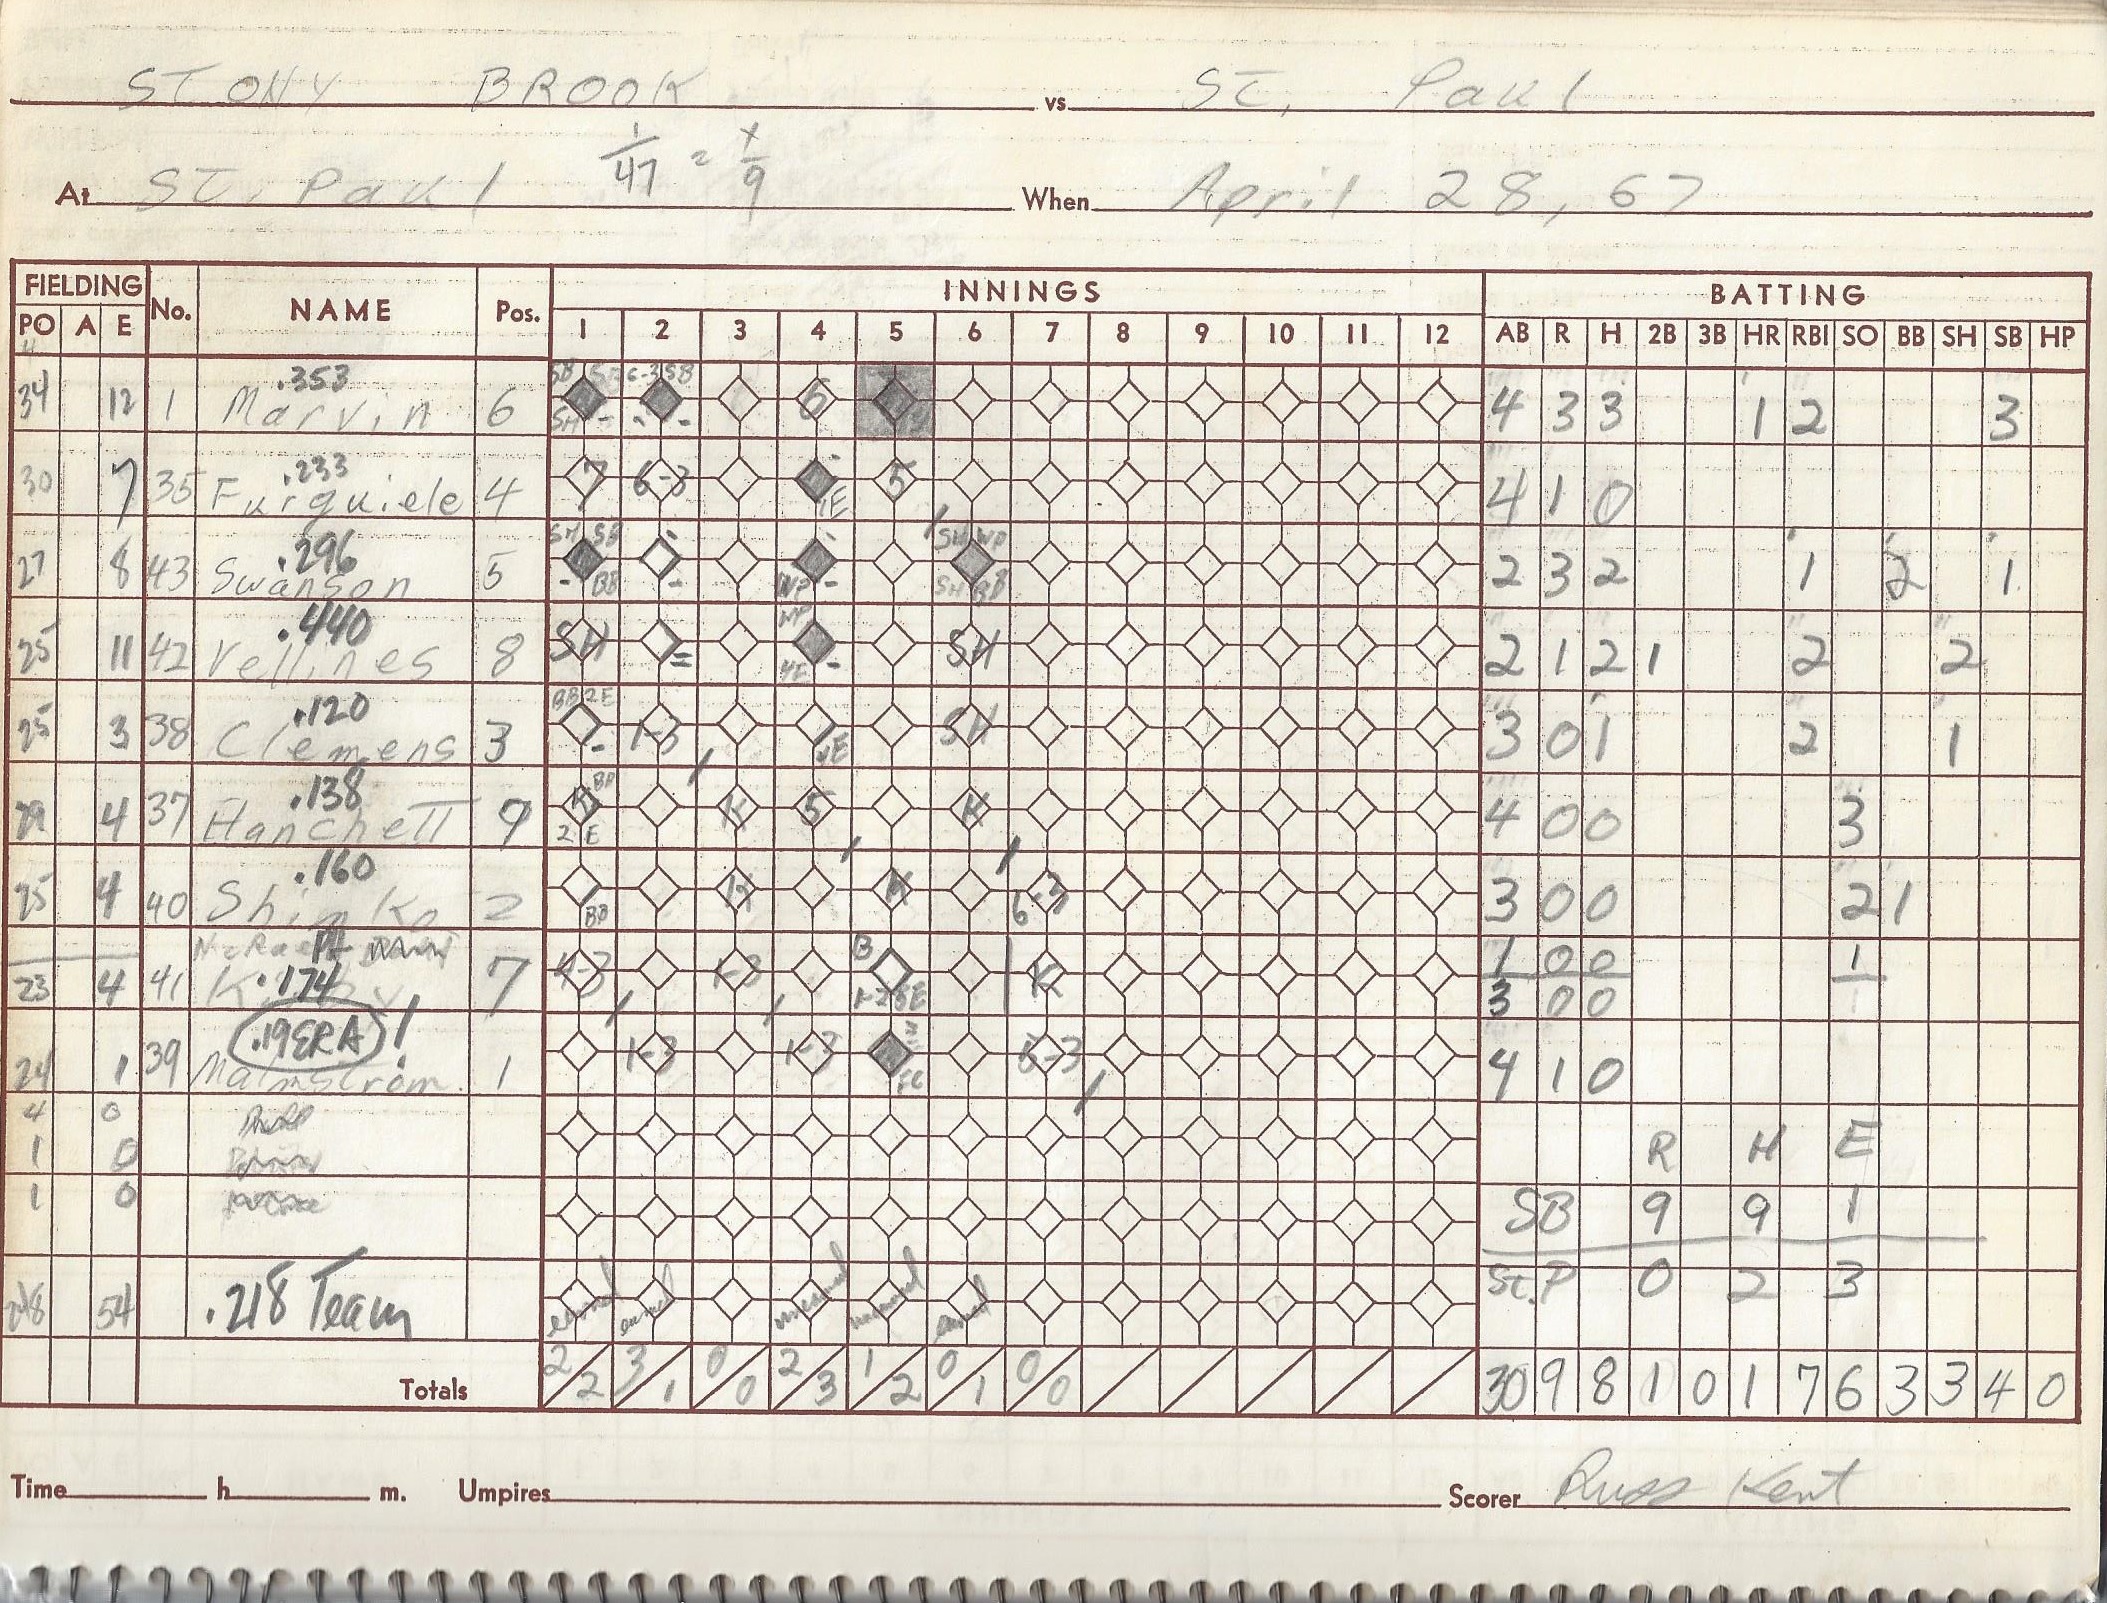 STONY BROOK vs. ST. Paul
1/47 = x/9
At ST. Paul When April 28, 67
FIELDING No. NAME Pos. INNINGS BATTING
PO A E 1 2 3 4 5 6 7 8 9 10 11 12 AB R H 2B 3B HR RBI SO BB SH SB HP
.353
34 12 1 Marvin 6 SB 6-3 SB 6 4 3 3 1 2 3
.233
30 7 35 Furguiele 4 7 6-3 1E 5 4 1 0
.296
27 8 43 Swanson 5 SH SB BB WP SH WP SH BB 2 3 2 1 2 1
.440
25 11 42 Vellines 8 SH = WP 4E SH 2 1 2 1 2 2
.120
25 3 38 Clemens 3 BB 2E 1-3 E SH 3 0 1 2 1
.138
29 4 37 Hanchett 9 K 2E K 5 K 4 0 0 3
.160
25 4 40 Shimko 2 BB K K 6-3 3 0 0 2 1
1 0 0 1
.174
23 4 41 7 4-3 1-3 B 1-2 5E K 3 0 0 1
.19 ERA !
24 1 39 Malmstrom 1 1-3 1-3 FC 5-3 4 1 0
4 0
R H E
1 0
1 0 SB 9 9 1
248 54 .218 Team earned earned unearned unearned earned St.P 0 2 3
Totals 2/2 3/1 0/0 2/3 1/2 0/1 0/0 30 9 8 1 0 1 7 6 3 3 4 0
Time h. m. Umpires Scorer Russ Kent